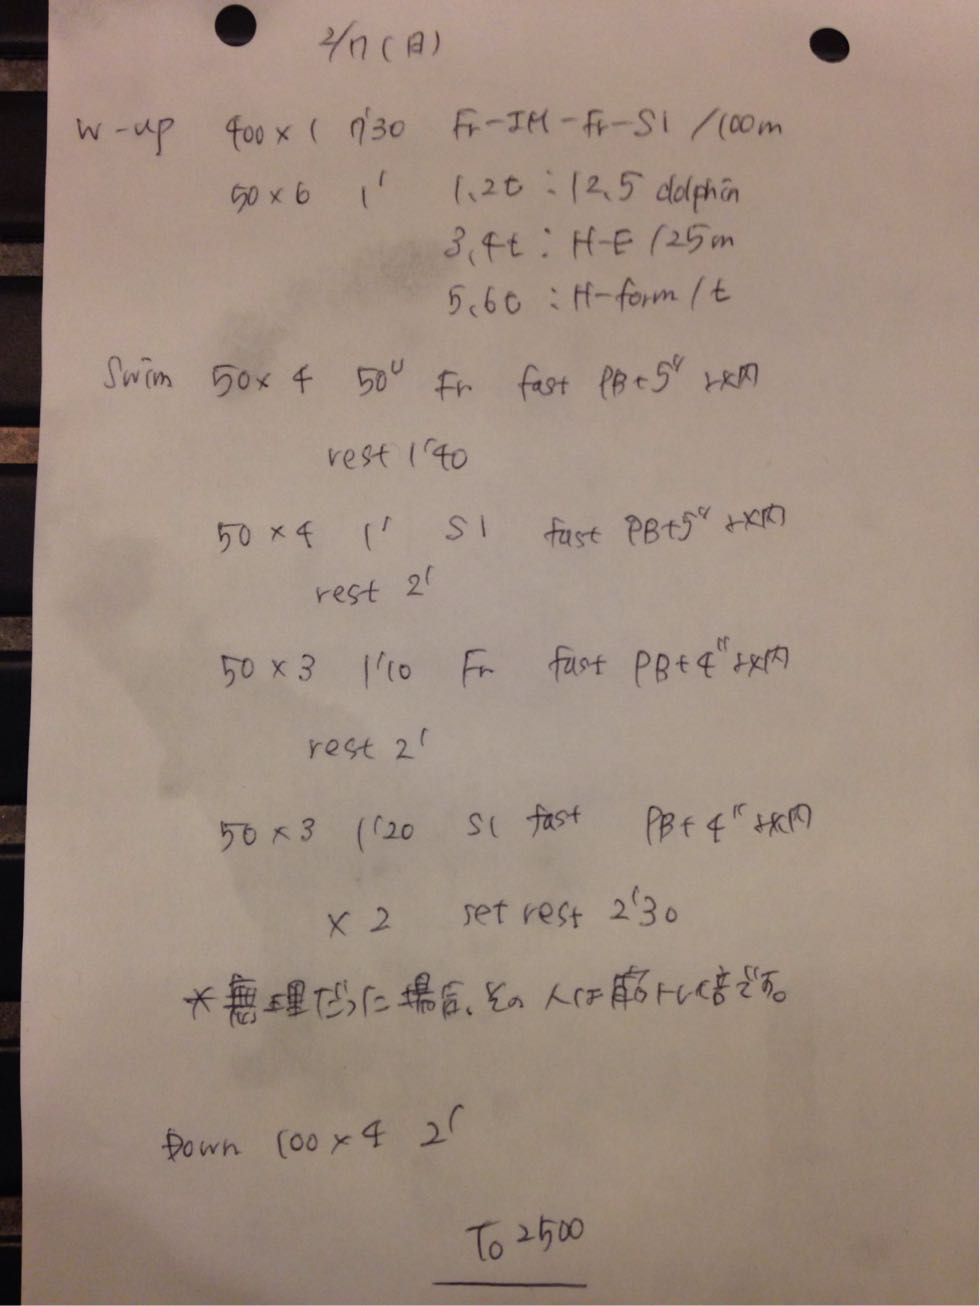 2/17(日)
W-up 400×1 7'30 Fr-IM-Fr-S1 /100m
50×6 1' 1,2t:12.5 dolphin
3,4t:H-E /25m
5,6t:H-form/t
Swim 50×4 50" Fr fast PB+5"以内
rest 1'40
50×4 1' S1 fast PB+5"以内
rest 2'
50×3 1'10 Fr fast PB+4"以内
rest 2'
50×3 1'20 S1 fast PB+4"以内
×2 set rest 2'30
*無理だった場合、その人は筋トレ倍です。
Down 100×4 2'
To 2500